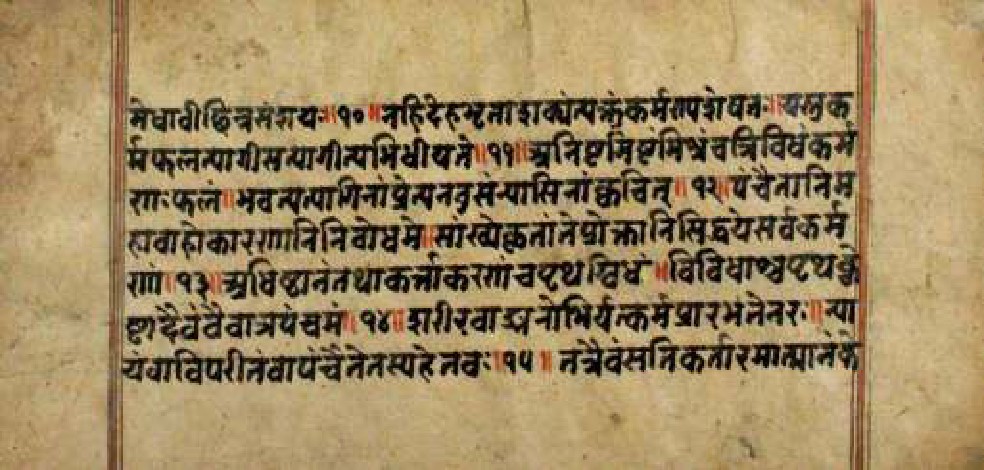 मेधावीछिन्नसंशयः॥१०॥नहिदेहभृताशक्यंत्यक्तुंकर्मण्यशेषतः॥यस्तुक
र्मफलत्यागीसत्यागीत्यभिधीयते॥११॥अनिष्टमिष्टंमिश्रंचत्रिविधंकर्म
णःफलं॥भवत्यत्यागिनांप्रेत्यनतुसंन्यासिनांक्वचित्॥१२॥पंचैतानिम
हाबाहोकारणानिनिबोधमे॥सांख्येकृतांतेप्रोक्तानिसिद्धयेसर्वकर्म
णां॥१३॥अधिष्ठानंतथाकर्त्ताकरणंचपृथग्विधं॥विविधाश्चपृथक्चे
ष्टादैवंचैवात्रपंचमं॥१४॥शरीरवाङ्मनोभिर्यत्कर्मप्रारभतेनरः॥न्या
य्यंवाविपरीतंवापंचैतेतस्यहेतवः॥१५॥तत्रैवंसतिकर्तारमात्मानंके